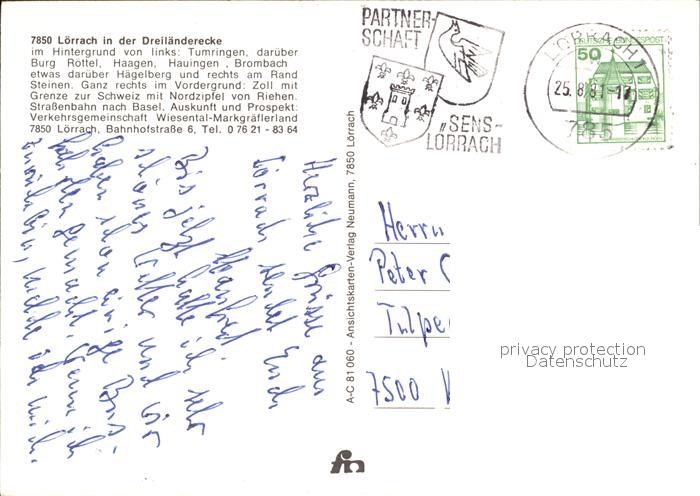 7850 Lörrach in der Dreiländerecke
im Hintergrund von links: Tumringen, darüber
Burg Röttel, Haagen, Hauingen, Brombach
etwas darüber Hägelberg und rechts am Rand
Steinen. Ganz rechts im Vordergrund: Zoll mit
Grenze zur Schweiz mit Nordzipfel von Riehen.
Straßenbahn nach Basel. Auskunft und Prospekt:
Verkehrsgemeinschaft Wiesental-Markgräflerland
7850 Lörrach, Bahnhofstraße 6, Tel. 0 76 21 - 83 64
PARTNER-
SCHAFT
"SENS-
LÖRRACH
LÖRRACH 1
25.8.81-17
785
DEUTSCHE BUNDESPOST
50
Herzliche Grüsse aus
Lörrach sendet Euch
Manfred
Bis jetzt hatte ich sehr
schönes Wetter und wir
haben schon einige
gemacht. Wenn ich
A-C 81 060 - Ansichtskarten-Verlag Neumann, 7850 Lörrach
Herrn
Peter
Tulpe
7500
privacy protection
Datenschutz
fn